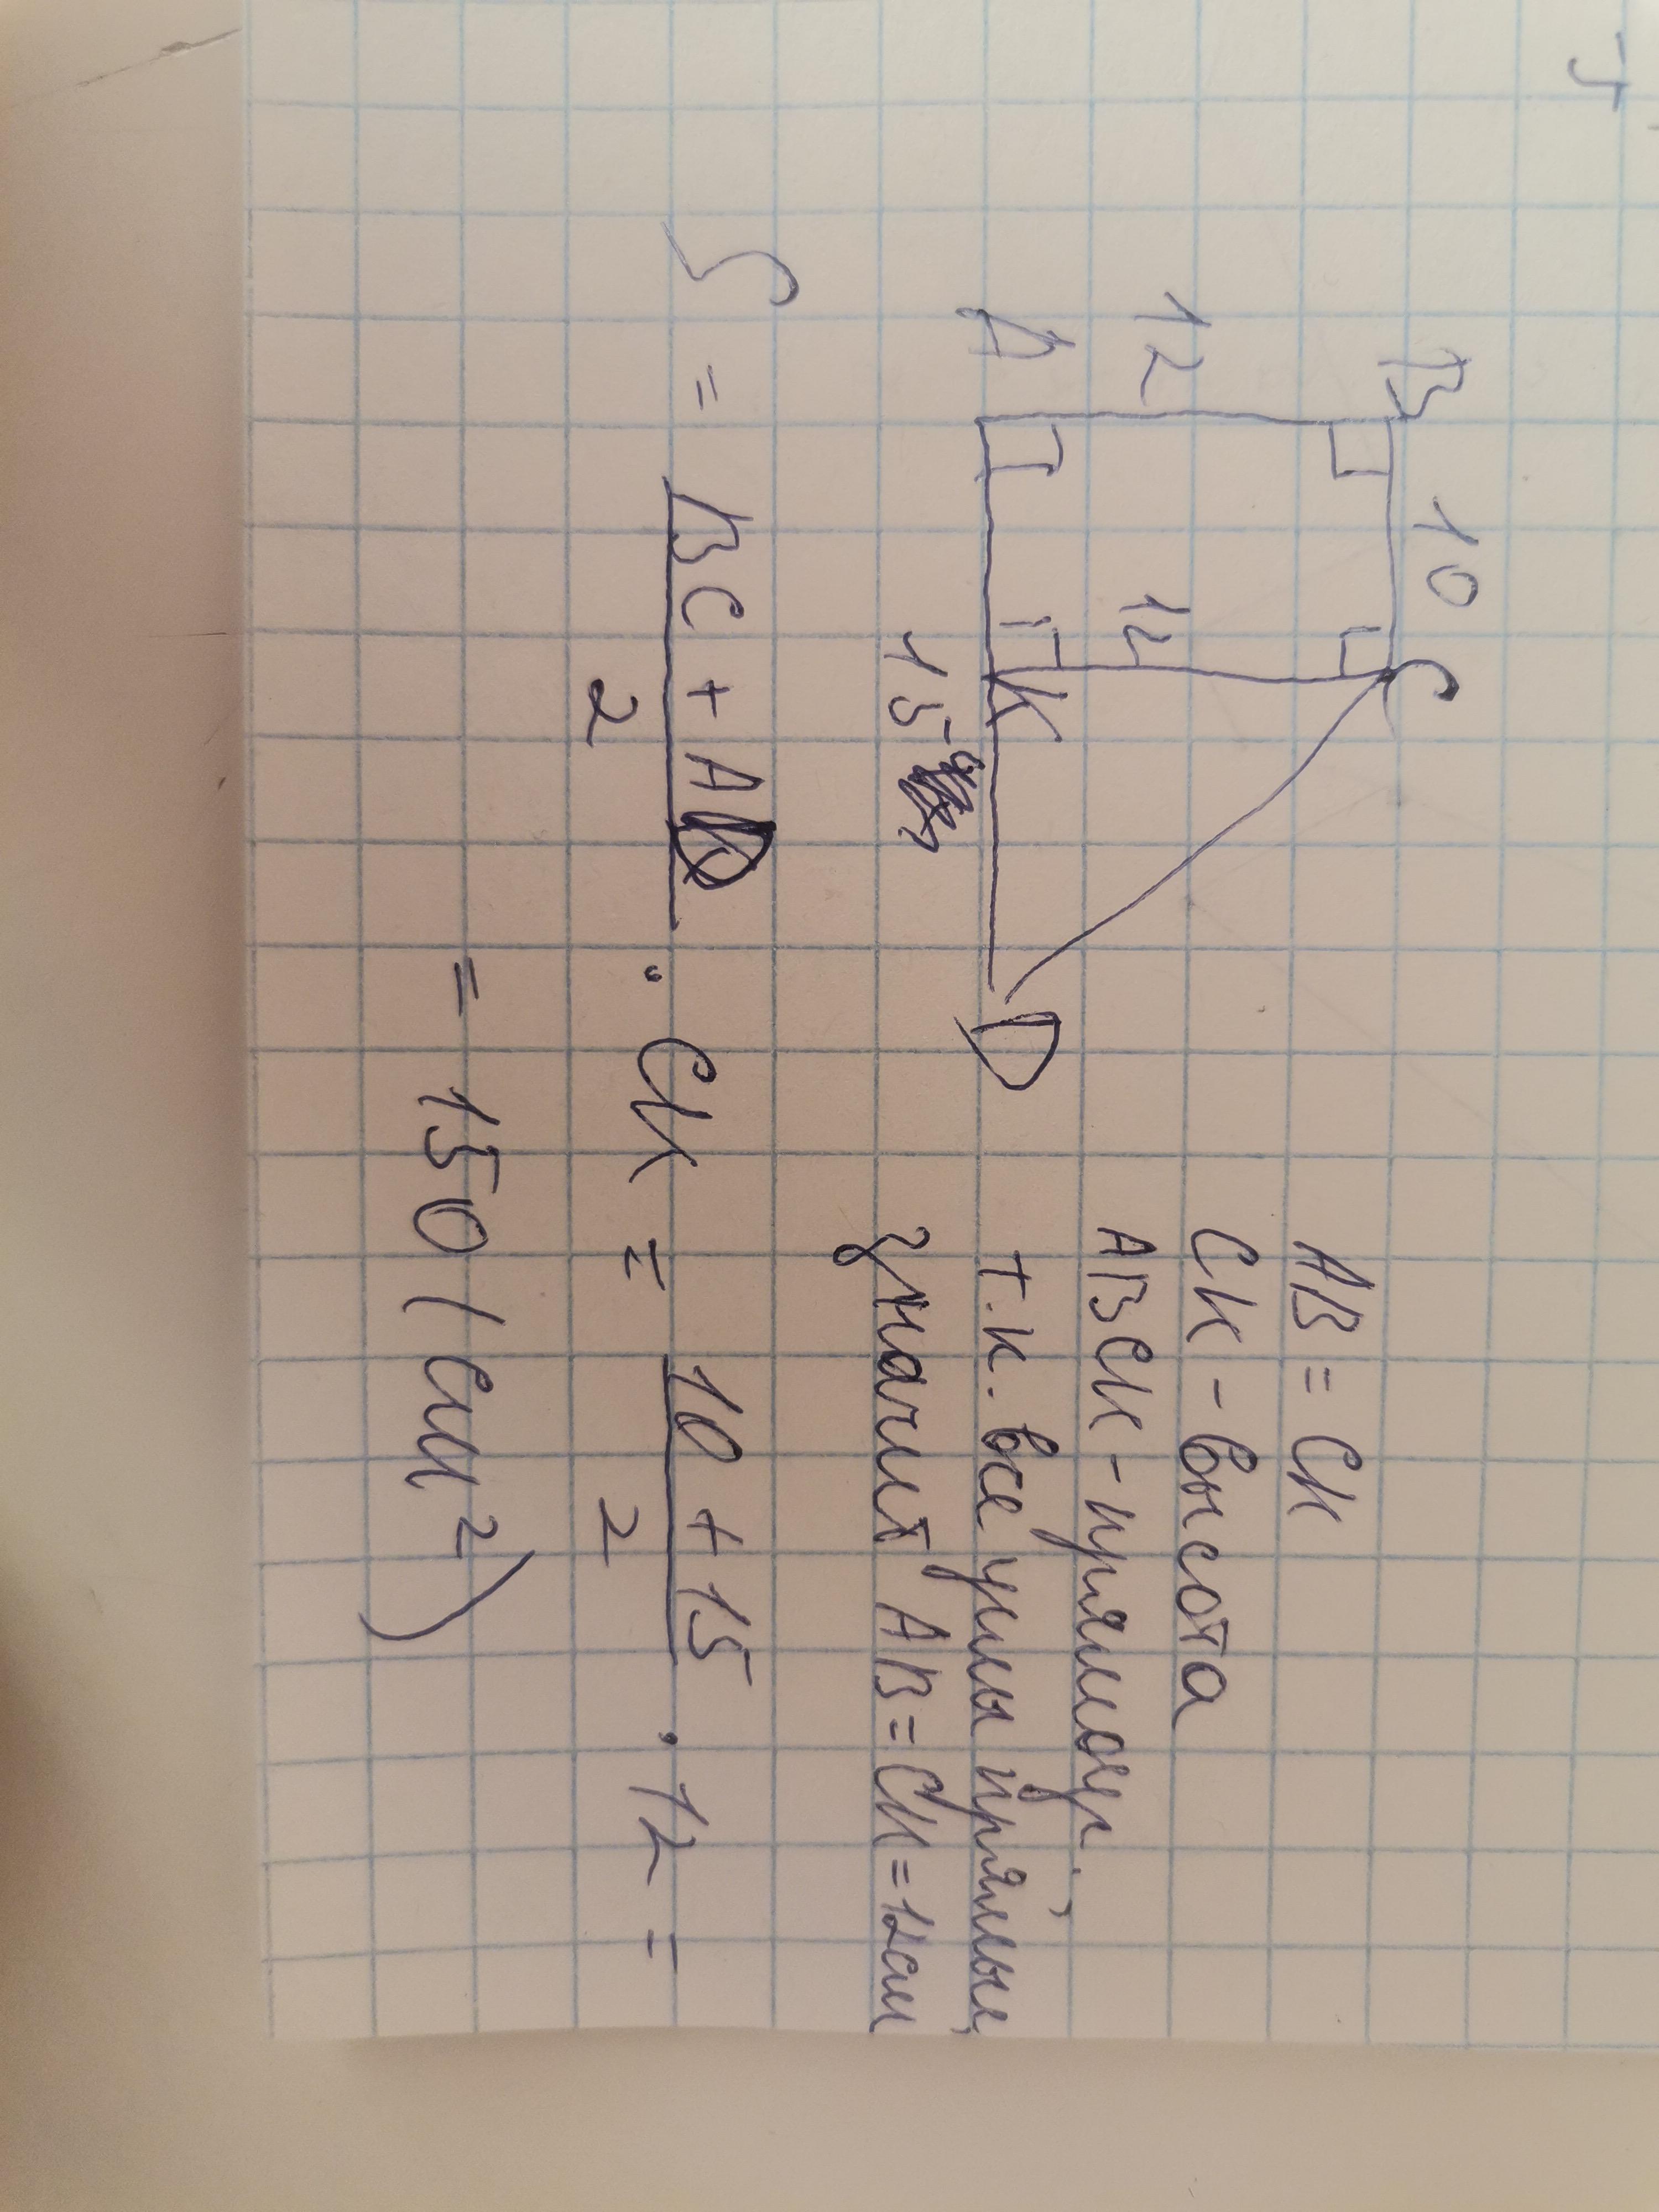 B 10 C
12 12
A K D
15
AB = CK
CK - высота
ABCK - прямоуг.,
т.к. все углы прямые,
значит AB = CK = 12см
S = BC + AD / 2 · CK = 10 + 15 / 2 · 12 =
= 150 (см²)